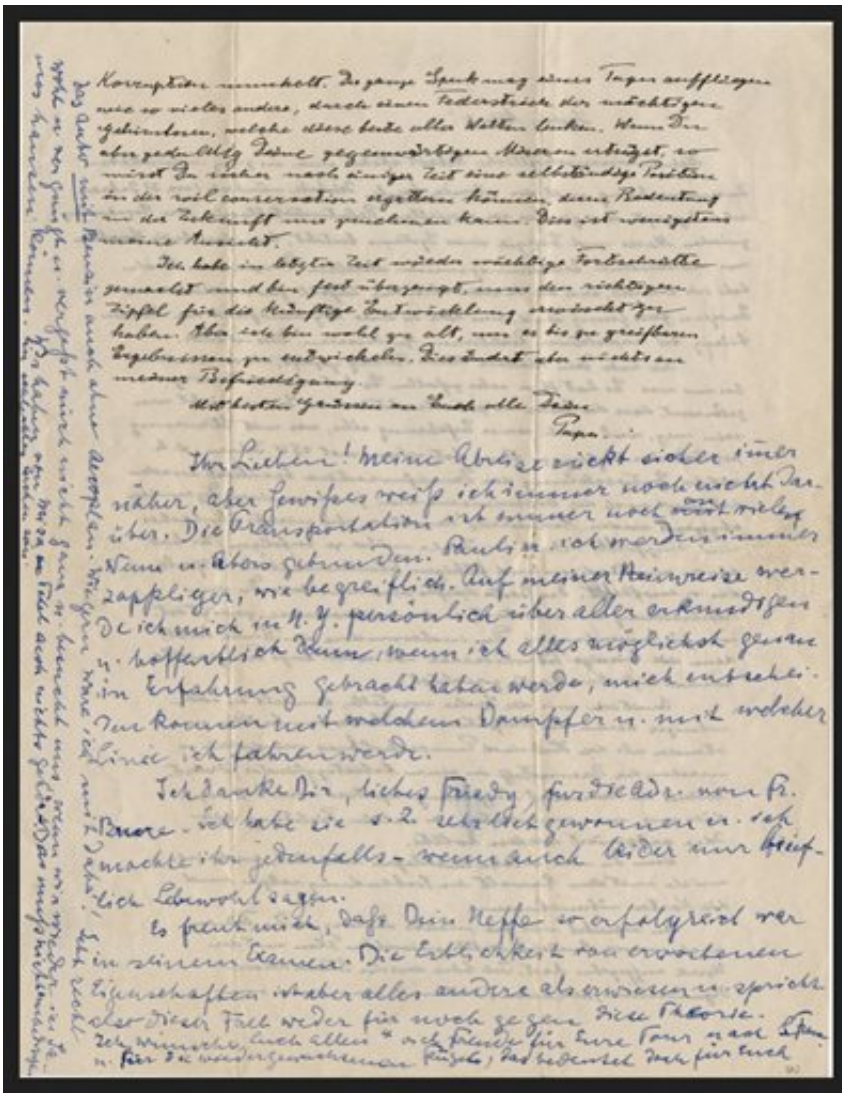 Korruption munkelt. Der ganze Spuk mag eines Tages auffliegen
wie so vieles andere, durch einen Federstrich der mächtigen
Geheimtoren, welche diese beste aller Welten lenken. Wenn Du
aber geduldig Deine gegenwärtigen Miseren erträgst, so
wirst Du sicher nach einiger Zeit eine selbständige Position
in der soil conservation ergattern können, deren Bedeutung
in der Zukunft nur zunehmen kann. Dies ist wenigstens
meine Ansicht.
Ich habe in letzter Zeit wieder wichtige Fortschritte
gemacht und bin fest überzeugt, nun den richtigen
Zipfel für die künftige Entwicklung erwischt zu
haben. Aber ich bin wohl zu alt, um es bis zu greifbaren
Ergebnissen zu entwickeln. Dies ändert aber nichts an
meiner Befriedigung.
Mit besten Grüssen an Euch alle Dein
Papa.
Ihr Lieben! Meine Abreise rückt sicher imer
näher, aber Gewisses weiß ich immer noch nicht dar-
über. Die Transportation ist immer noch an viele
Wenn u. Abers gebunden. Paul u. ich werden immer
zappliger, wie begreiflich. Auf meiner Heimreise wer-
de ich mich in N.Y. persönlich über alles erkundigen
u. hoffentlich dann, wenn ich alles möglichst genau
in Erfahrung gebracht haben werde, mich entschei-
den können mit welchem Dampfer u. mit welcher
Linie ich fahren werde.
Ich danke Dir, liebes Friedy, für die Adr. von Fr.
ich habe sie s. Z. sehr lieb gewonnen u. ich
möchte ihr jedenfalls – wenn auch leider nur brief-
lich Lebewohl sagen.
Es freut mich, dass Dein Neffe so erfolgreich war
in seinem Examen. Die Erblichkeit von erworbenen
Eigenschaften ist aber alles andere als erwiesen u. spricht
also dieser Fall weder für noch gegen diese Theorie.
Ich wünsche Euch allen viel Freude für Eure Tour nach
u. für die wiedergewachsenen Flügel, das bedeutet doch für Euch
das Auto mit Benzin auch ohne Aeroplan. Wie gern wäre ich mit dabei! Lebt recht
wohl u. vergnügt u. vergesst mich nicht ganz u. besucht uns wenn wir wieder in
hausen können. Wir haben von Miza u. auch nichts gehört. Das muß nichts